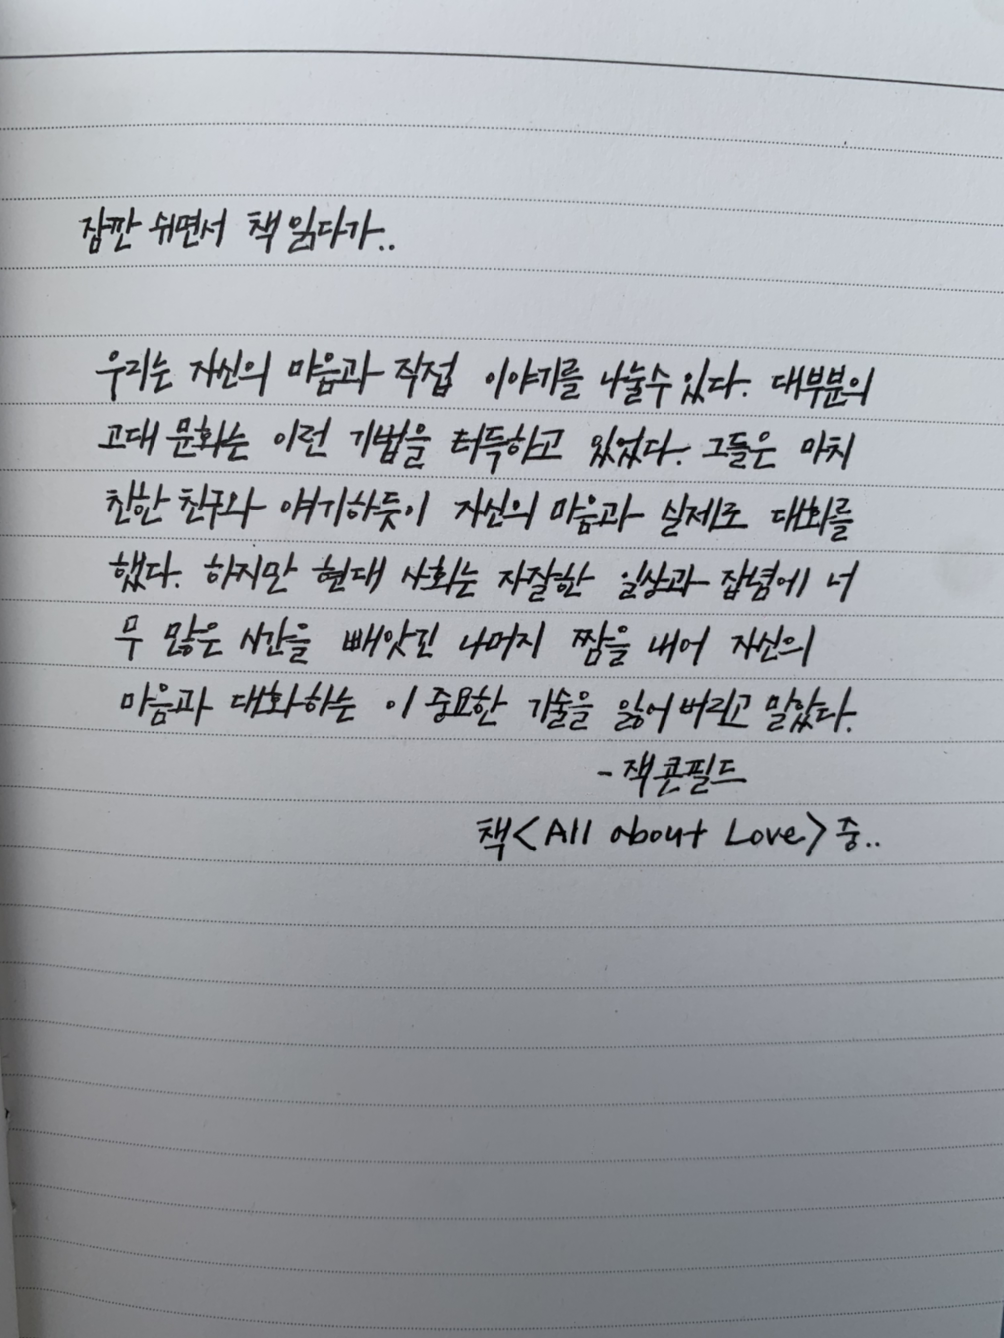 잠깐 쉬면서 책 읽다가..
우리는 자신의 마음과 직접 이야기를 나눌수 있다. 대부분의
고대 문화는 이런 기법을 터득하고 있었다. 그들은 마치
친한 친구와 얘기하듯이 자신의 마음과 실제로 대화를
했다. 하지만 현대 사회는 자잘한 일상과 잡념에 너
무 많은 시간을 빼앗긴 나머지 짬을 내어 자신의
마음과 대화하는 이 중요한 기술을 잃어버리고 말았다.
- 잭콘필드
책<All about Love>중..